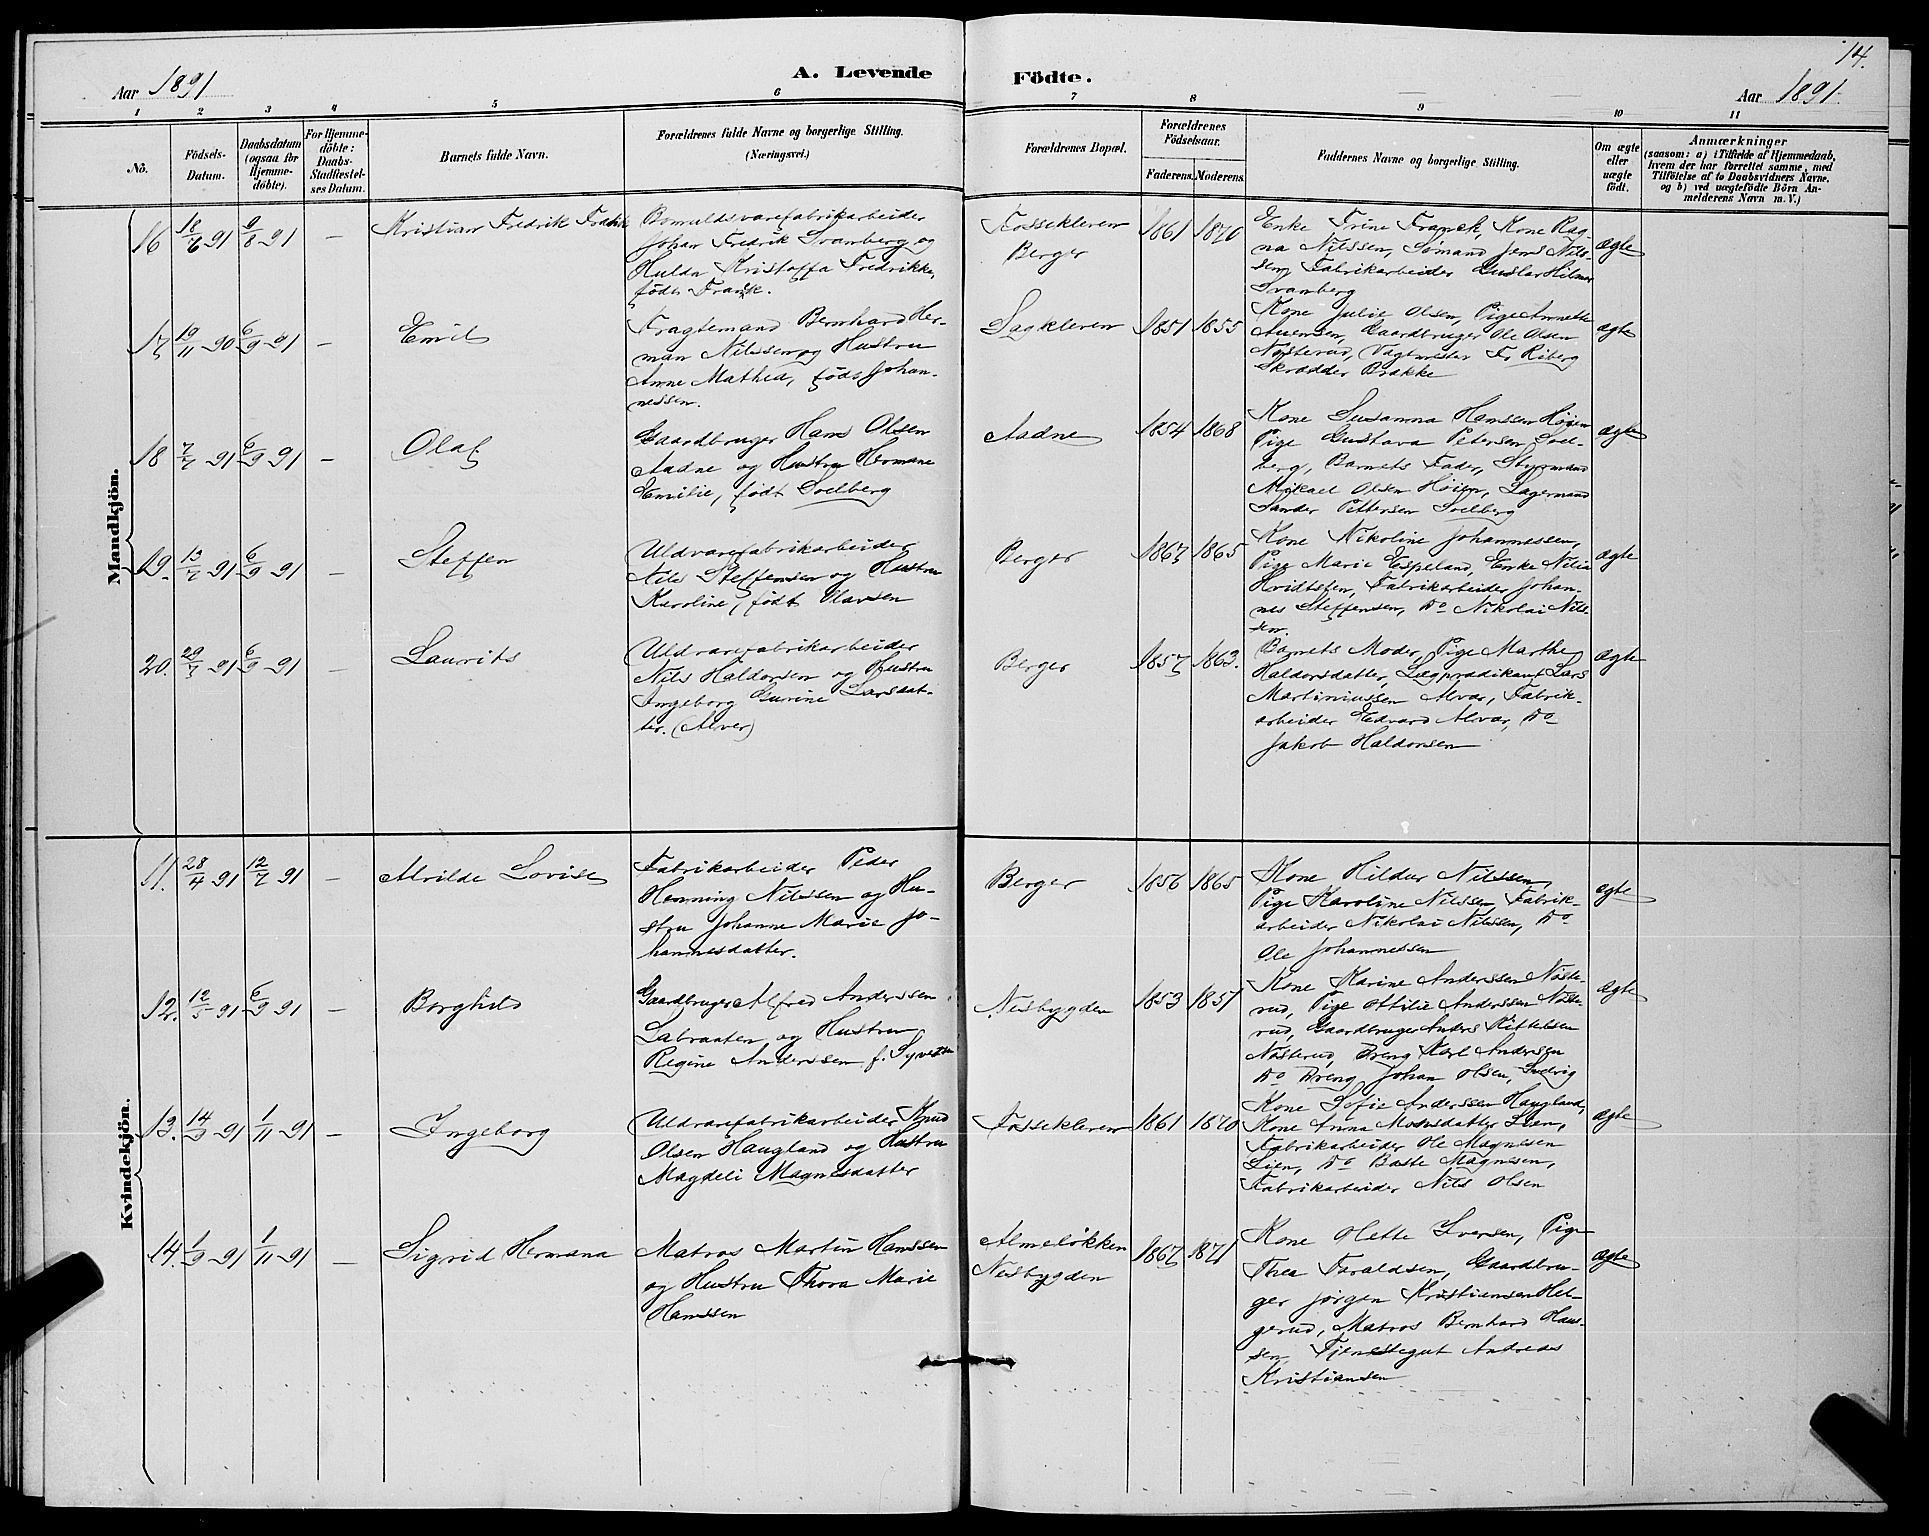 14.
Aar 1891
A. Levende Födte.
Aar 1891
1 2 3 4 5 6 7 8 9 10 11
No.
Födsels-
Datum.
Daabsdatum
(ogsaa for
Hjemme-
döbte).
For Hjemme-
döbte:
Daabs-
Stadfæstel-
ses Datum.
Barnets fulde Navn.
Forældrenes fulde Navne og borgerlige Stilling.
(Næringsvei.)
Forældrenes Bopæl.
Forældrenes
Födselsaar.
Faderens. Moderens.
Faddernes Navne og borgerlige Stilling.
Om ægte
eller
uægte
födt.
Anmærkninger
(saasom: a) i Tilfælde af Hjemmedaab,
hvem der har forrettet samme, med
Tilföielse af to Daabsvidners Navne,
og b) ved uægtefödte Börn An-
melderens Navn m. V.)
Mandkjön.
16 18/6 91 9/8 91
Kristian Fredrik Frank
Bomuldsvarefabrikarbeider
Johan Fredrik Svanberg og
Huldn Kristoffa Fredrikke,
född Franck.
Fossekleven
Berger
1861 1870
Enke Trine Franck, Kone Rag-
na Nilssen, Sömand Jens Nils-
sen, Fabrikarbeider Gustav Hilmar
Svanberg
Ægte
17 19/11 90 6/9 91 –
Emil
Fragtemand Bernhard Her-
man Nilssen og Hustru
Anne Mathea, föds Johan-
nessen.
Sagkleven
1851 1855
Kone Julie Olsen, Pige Annette
Auensen, Gaardbruger Ole Olsen
Nösterud, Vagtmester Fr. Riberg
Skrædder Brække
Ægte
18 7/7 91 6/9 91 –
Olaf
Gaardbruger Hans Olsen
Aadne og Hustru Hermane
Emilie, född Svelberg
Aadne
1854 1868
Kone Susanna Hanssen Höien
Pige Gustava Petersen Svel-
berg, Barnets Fader, Styrmand
Mikael Olsen Höien, Lagermand
Sander Pettersen Svelberg
Ægte
19. 13/7 91 6/9 91 –
Steffen
Uldvarefabrikarbeider
Nils Steffensen og Hustru
Karoline, född Olavsen
Berger
1867 1865
Kone Nikoline Johannessen,
Pige Marie Espeland, Enke Nilia
Hvidtsten, Fabrikarbeider Johan-
nes Steffensen, Do Nikolai Nils-
sen.
Ægte
20. 29/7 91 6/9 91 –
Laurits
Uldvarefabrikarbeider
Nils Haldorsen og Hustru
Ingeborg Gurine Larsdat-
ter. (Alver)
Berger
1857 1863.
Barnets Moder, Pige Marthe
Haldorsdatter, Lægprædikant Lars
Martiniussen Alvær, Fabrik-
arbeider Edvard Alvær, Do
Jakob Haldorsen
Ægte
Kvindekjön.
11. 28/4 91 12/7 91 –
Alvilde Lovise
Fabrikarbeider Peder
Henning Nilssen og Hu-
stru Johanne Marie Jo-
hannesdatter.
Berger
1856 1865
Kone Hildur Nilssen,
Pige Karoline Nilssen, Fabrik-
arbeider Nikolai Nilssen, Do
Ole Johannessen
Ægte
12. 12/5 91 6/9 91 –
Borghild
Gaardbruger Alfred Anderssen
Labraaten og Hustru
Regine Anderssen f. Syvertsen
Nesbygden
1853 1857
Kone Karine Anderssen Nöste-
rud, Pige Ottilie Anderssen Nöste-
rud, Gaardbruger Anders Kittelsen
Nösterud, Dreng Karl Andersen
Do Dreng Johan Olsen,
Ægte
13. 14/9 91 1/11 91 –
Ingeborg
Uldvarefabrikarbeider Knud
Olsen Haugland og Hustru
Magdeli Magnesdatter
Fossekleven
1861 1870
Kone Sofie Anderssen Haugland,
Kone Anna Monsdatter Lien,
Fabrikarbeider Ole Magnesen
Lien, Do Baste Magnesen,
Fabrikarbeider Nils Olsen
Ægte
14. 1/9 91 1/11 91 –
Sigrid Hermana
Matros Martin Hanssen
og Hustru Thora Marie
Hanssen
Almelökken
Nesbygden
1867 1871
Kone Olette Iversen, Pige
Thea Faraldsen, Gaardbru-
ger Jörgen Kristiansen Hel-
gerud, Matros Bernhard Hans-
sen Tjenestegut Andreas
Kristiansen
Ægte